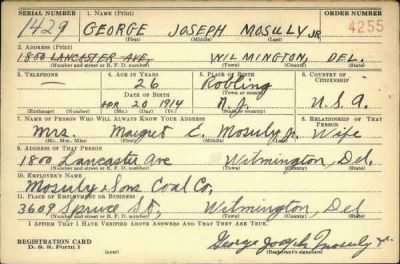 SERIAL NUMBER 1. NAME (Print) ORDER NUMBER
1429 GEORGE JOSEPH MOSULY JR 4255
(First) (Middle) (Last)
2. ADDRESS (Print)
1800 LANCASTER AVE, WILMINGTON, DEL.
(Number and street or R. F. D. number) (Town) (County) (State)
3. TELEPHONE 4. AGE IN YEARS 5. PLACE OF BIRTH 6. COUNTRY OF CITIZENSHIP
— 26 Robling
DATE OF BIRTH (Town or county)
Apr 20 1914 N.J. U.S.A.
(Exchange) (Number) (Mo.) (Day) (Yr.) (State or country)
7. NAME OF PERSON WHO WILL ALWAYS KNOW YOUR ADDRESS 8. RELATIONSHIP OF THAT PERSON
Mrs. Margret C. Mosuly Jr. Wife
(Mr., Mrs., Miss) (First) (Middle) (Last)
9. ADDRESS OF THAT PERSON
1800 Lancaster Ave Wilmington, Del.
(Number and street or R. F. D. number) (Town) (County) (State)
10. EMPLOYER'S NAME
Mosuly & Sons Coal Co,
11. PLACE OF EMPLOYMENT OR BUSINESS
3609 Spruce St, Wilmington, Del
(Number and street or R. F. D. number) (Town) (County) (State)
I AFFIRM THAT I HAVE VERIFIED ABOVE ANSWERS AND THAT THEY ARE TRUE.
REGISTRATION CARD George Joseph Mosuly Jr.
D. S. S. Form 1 (over) (Registrant's signature)